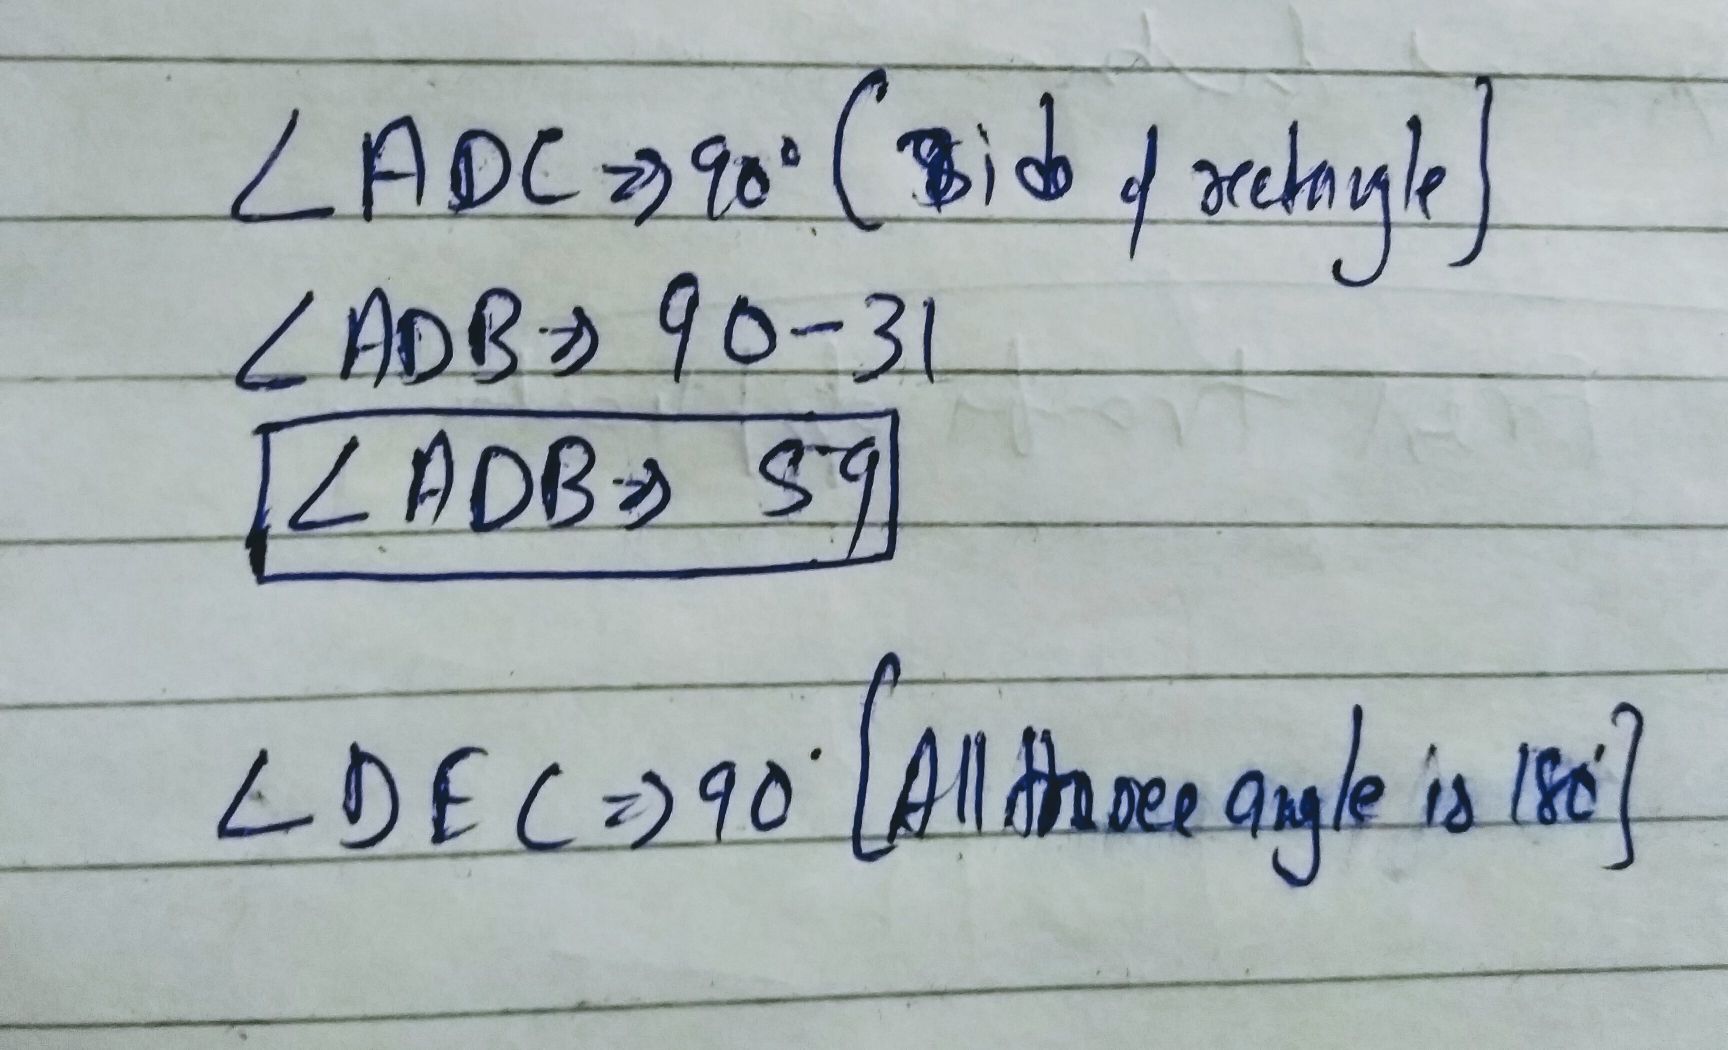 ∠ADC ⇒ 90° (Side of rectangle]
∠ADB ⇒ 90-31
∠ADB ⇒ 59
∠DEC ⇒ 90° [All three angle is 180°]